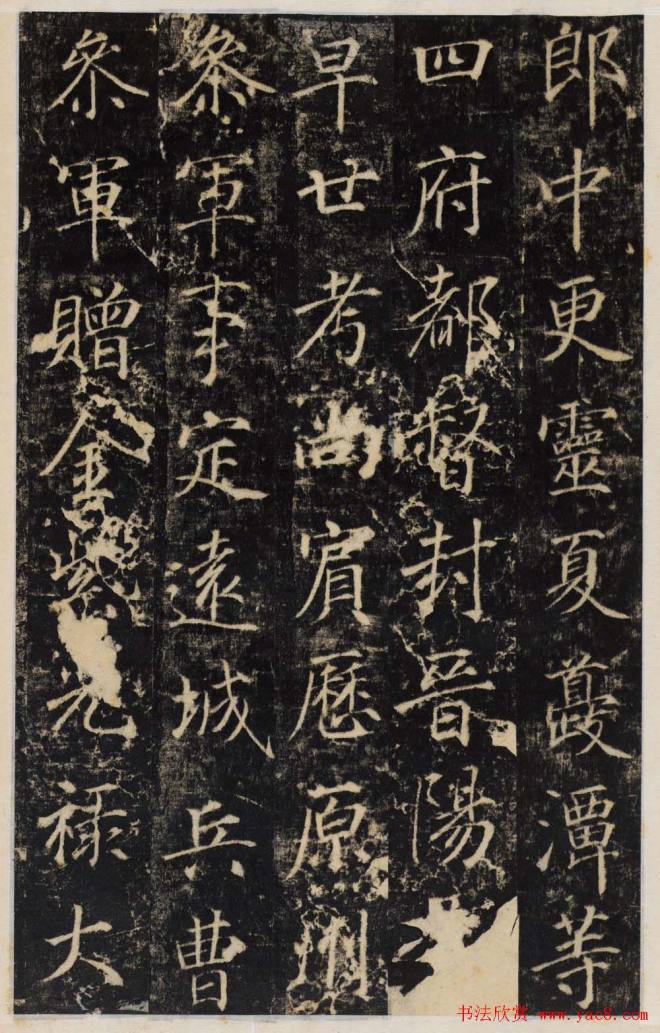 郎中更靈夏蘷潭等
四府都督封晉陽
早世考尚賔歷原州
叅軍事定遠城兵曹
叅軍贈金紫光禄大
书法欣赏 www.yac8.com